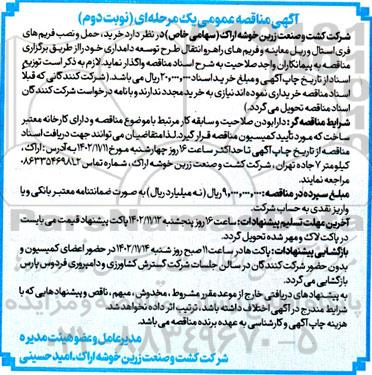 آگهی مناقصه عمومی یک مرحله‌ای (نوبت دوم)
شرکت کشت و صنعت زرین خوشه اراک (سهامی خاص) در نظر دارد خرید، حمل و نصب فریم های
فری استال و ریل معاینه و فریم های راهرو انتقال طرح توسعه دامداری خود را از طریق برگزاری
مناقصه به پیمانکاران واجد صلاحیت به شرح اسناد مناقصه واگذار نماید. لازم به ذکر است توزیع
اسناد از تاریخ چاپ آگهی و مبلغ خرید اسناد ۲۰,۰۰۰,۰۰۰ ریال می باشد. (شرکت کنندگانی که قبلاً
اسناد مناقصه خریداری نموده اند نیازی به خرید مجدد ندارند و با نامه درخواست شرکت کنندگان
اسناد مناقصه تحویل می گردد.)
شرایط مناقصه گر: دارا بودن صلاحیت و سابقه کار مرتبط با موضوع مناقصه و دارای کارخانه معتبر
ساخت که مورد تأیید کمیسیون مناقصه قرار گیرد. لذا متقاضیان می توانند جهت دریافت اسناد
مناقصه از تاریخ چاپ آگهی تا حداکثر ساعت ۱۶ روز چهارشنبه مورخ ۱۴۰۲/۱۱/۱۱ به آدرس: اراک،
کیلومتر ۷ جاده تهران، شرکت کشت و صنعت زرین خوشه اراک، شماره تماس ۰۸۶۳۳۵۴۶۹۸۱۲
مراجعه نمایند.
مبلغ سپرده در مناقصه: ۹,۰۰۰,۰۰۰,۰۰۰ ریال (نه میلیارد ریال) به صورت ضمانتنامه معتبر بانکی و یا
واریز نقدی به حساب شرکت
آخرین مهلت تسلیم پیشنهادات: ساعت ۱۶ روز پنجشنبه ۱۴۰۲/۱۱/۱۲ پاکت پیشنهاد قیمت می بایست
در پاکت لاک و مهر شده تحویل گردد.
بازگشایی پیشنهادات: پاکت ها در ساعت ۱۱ صبح روز شنبه ۱۴۰۲/۱۱/۱۴ در حضور اعضای کمیسیون و
بدون حضور شرکت کنندگان در سالن جلسات شرکت گسترش کشاورزی و دامپروری فردوس پارس
بازگشایی می گردد.
به پیشنهادهای دریافتی خارج از موعد مقرر مشروط، مخدوش، مبهم، ناقص و پیشنهادهایی که با
شرایط مندرج در آگهی اختلاف داشته باشد، ترتیب اثر داده نخواهد شد.
هزینه چاپ آگهی و کارشناسی به عهده برنده مناقصه می باشد.
مدیرعامل و عضو هیئت مدیره
شرکت کشت و صنعت زرین خوشه اراک. امید حسینی
۰۲۱-۸۸۳۴۹۶۷۰-۵